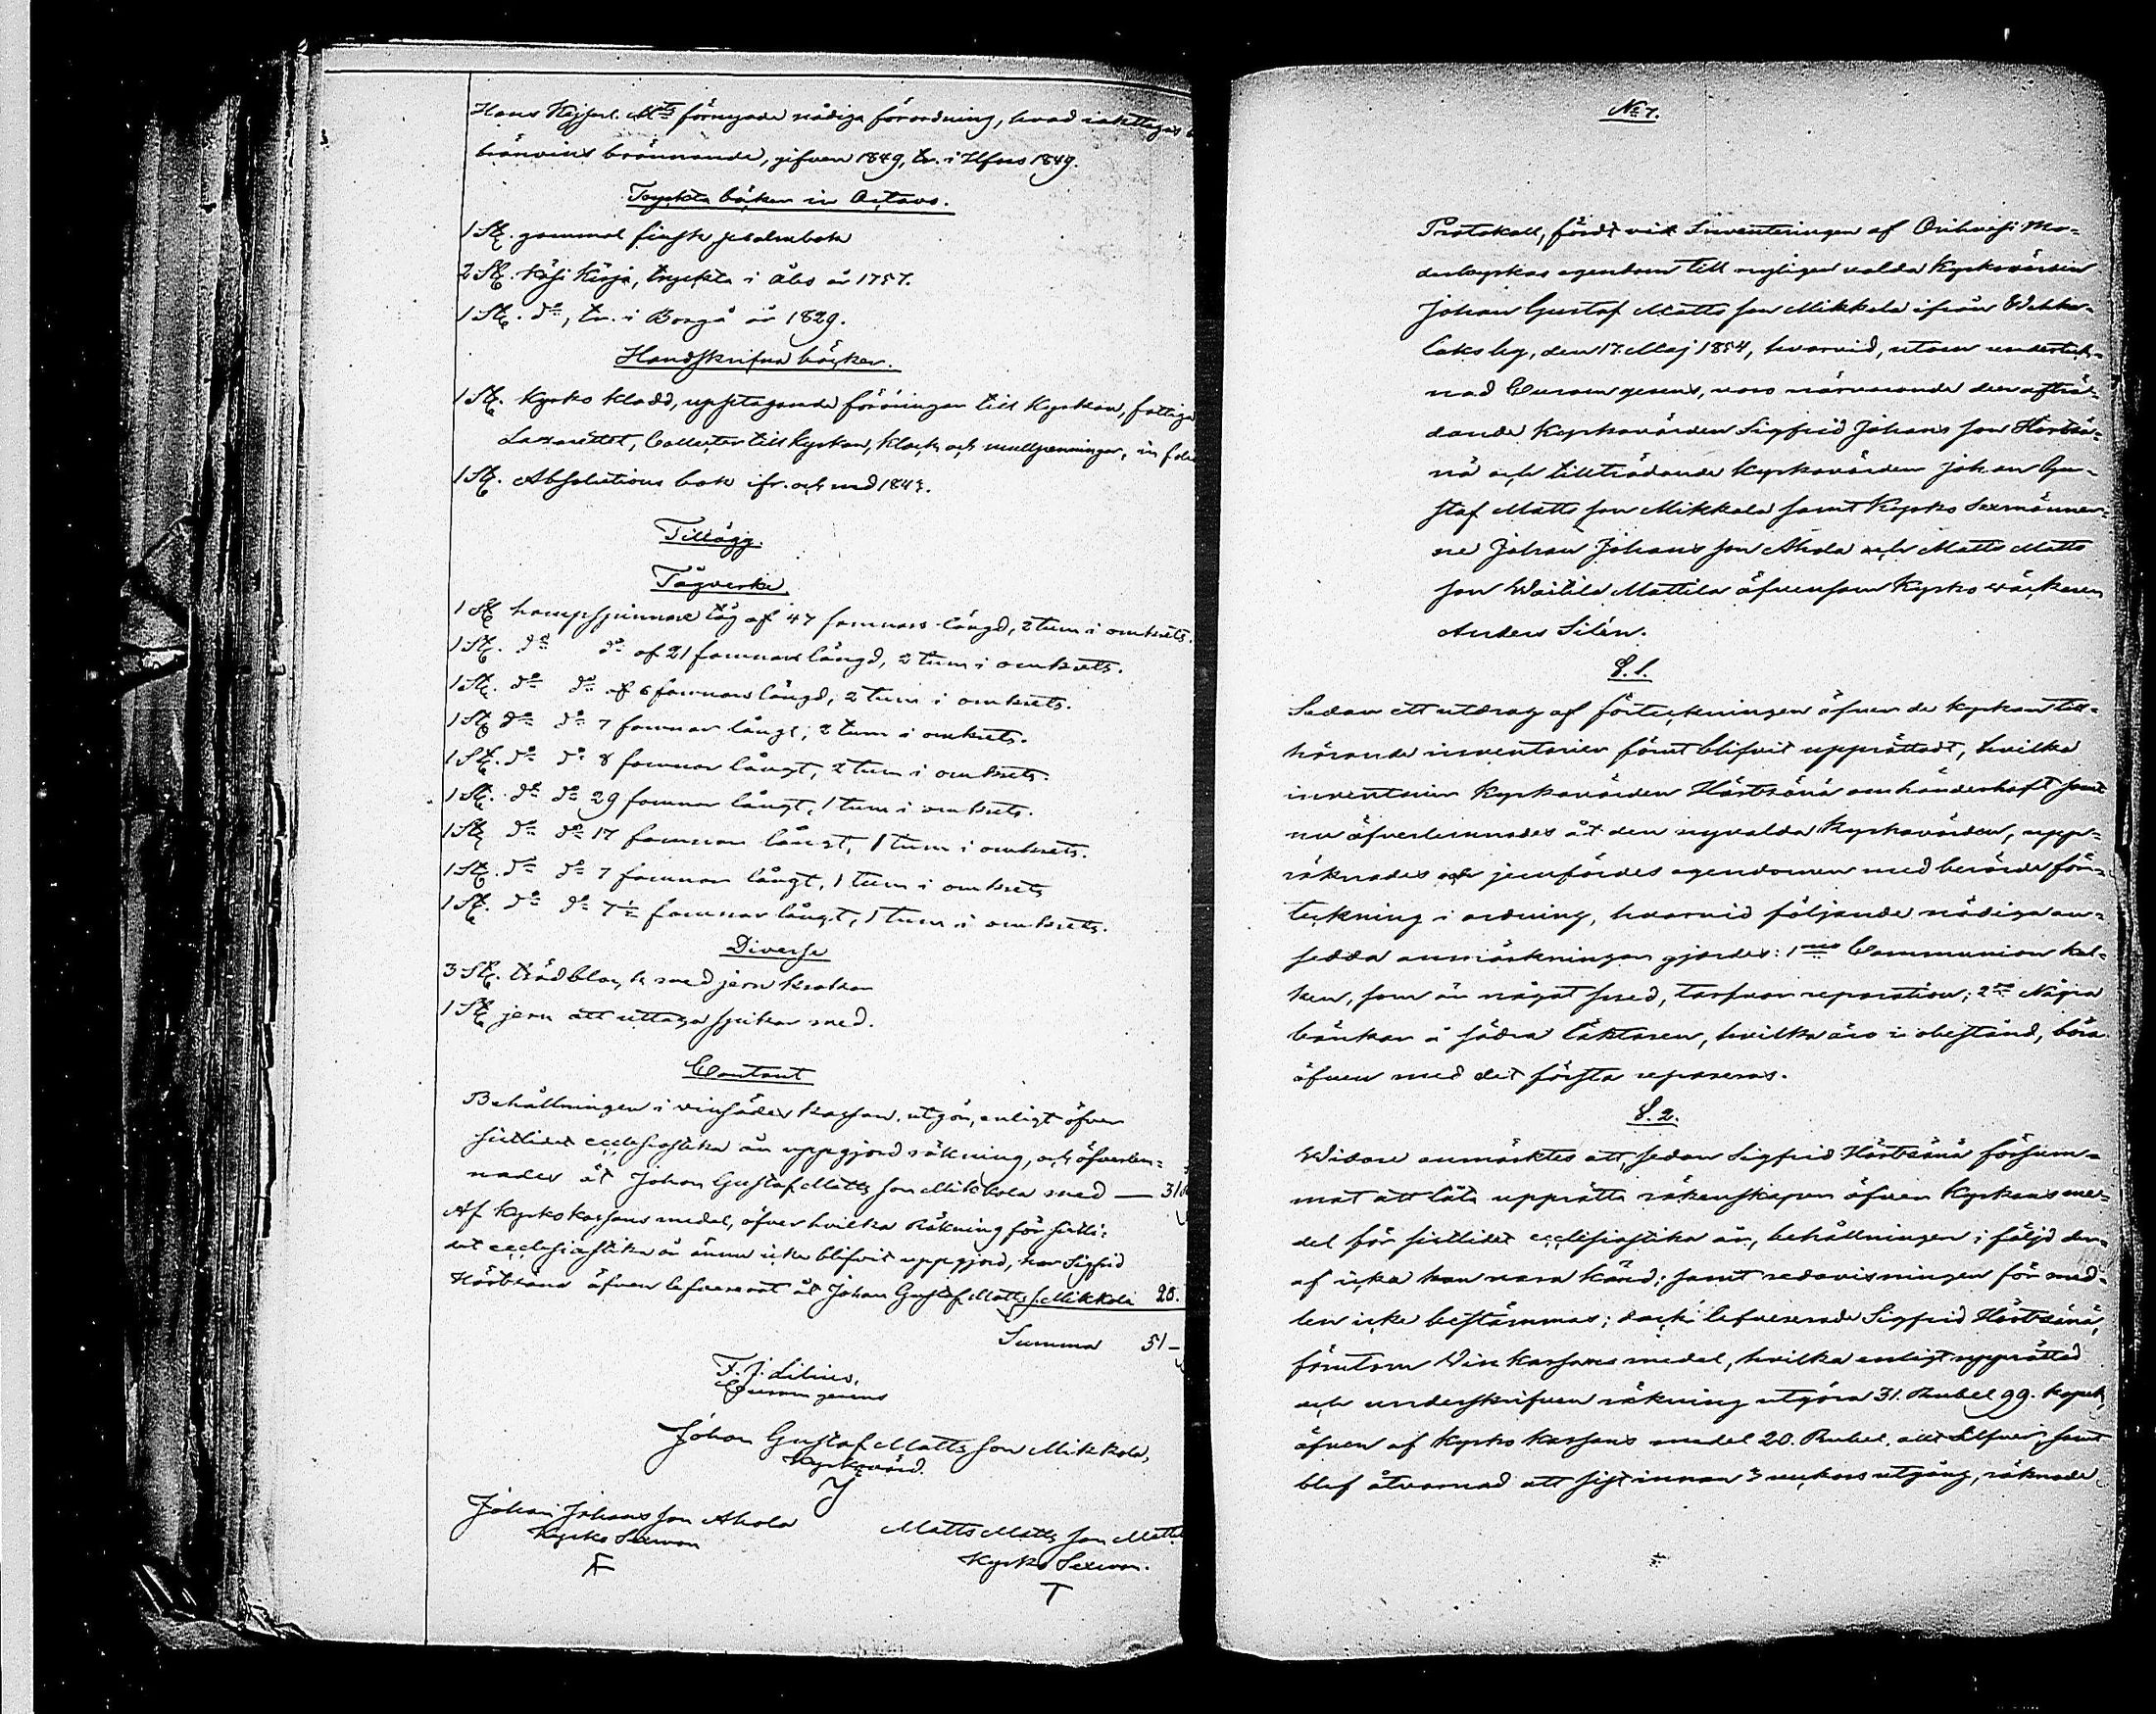 Hans Kejserl. Mts förnyade nådiga förordning, hvad iakttagas
bränvins brännande, gifven 1849, tr. i Hfors 1849.
Tryckta böcker in Octavo.
1 St. gammal finsk psalmbok
2 St. Käsi Kirja, tryckta i Åbo år 1757.
1 St. do, tr. i Borgå år 1829.
Handskrifna böcker.
1 St. Kyrko kladd, upptagande föräringar till Kyrkan, fattiga
Lazarettet, Collecter till kyrkan, klock och mullpenningar, in folio
1 St. Absolutions bok ifr. och med 1843.
Tillägg.
Tågverke.
1 St hampspinnare tåg af 47 famnars längd, 2 tum i omkrets.
1 St. do do af 21 famnars längd, 2 tum i omkrets.
1 St. do do af 6 famnars längd, 2 tum i omkrets.
1 St do do 7 famnar långt, 2 tum i omkrets.
1 St. do do 8 famnar långt, 2 tum i omkrets.
1 St. do do 29 famnar långt, 1 tum i omkrets.
1 St do do 17 famnar långt, 1 tum i omkrets.
1 St. do do 7 famnar långt, 1 tum i omkrets
1 St. do do 7½ famnar långt, 1 tum i omkrets.
Diverse
3 St. träd block med jern krokar
1 St jern att uttaga spikar med.
Contant
Behållningen i vinsädes kassan, utgör, enligt öfver
sistlidet ecclesiastika år uppgjord räkning, och öfverlem-
nades åt Johan Gustaf Matts son Mikkola med — 31
Af Kyrko kassans medel, öfver hvilka Räkning för sistli-
det ecclesiastika år ännu icke blifvit uppgjord, har Sigfrid
Härtsänä äfven lefvererat åt Johan Gustaf Matts s. Mikkola 20.
Summa 51 –
F. J. Lilius,
Curam gerens
Johan Gustaf Matts son Mikkola,
Kyrkovärd.
Johan Johans son Ahola
Kyrko Sexman
Matts Matts son
Kyrko Sexman.
No 7.
Protokoll, fördt vid Inventeringen af Orihvesi Mo-
derkyrkas egendom till nyligen valda Kyrkovärden
Johan Gustaf Matts son Mikkola ifrån Wehka-
laks by, den 17. Maj 1854, hvarvid, utom underteck-
nad Curam gerens, voro närvarande den afträ-
dande Kyrkovärden Sigfrid Johans son Härtsä-
nä och tillträdande Kyrkovärden Johan Gu-
staf Matts son Mikkola samt Kyrko Sexmänner-
ne Johan Johans son Ahola och Matts Matts
son Waitila Mattila äfvensom Kyrko väckaren
Anders Silén.
§. 1.
Sedan ett utdrag af förteckningen öfver de kyrkan till-
hörande inventarier förut blifvit upprättadt, hvilka
inventarier Kyrkovärden Härtsänä omhänderhaft samt
nu öfverlemnades åt den nyvalda Kyrkovärden, upp-
räknades och jemfördes egendomen med berörde för-
teckning i ordning, hvarvid följande nödiga an-
sedda anmärkningar gjordes: 1mo Communion kal-
ken, som är något sned, tarfvar reparation; 2do Några
bänkar å södra läktaren, hvilka äro i obestånd, böra
äfven med det första repareras.
§. 2.
Widare anmärktes att, sedan Sigfrid Härtsänä försum-
mat att låta upprätta räkenskapen öfver Kyrkans me-
del för sistlidet ecclesiastika år, behållningen i följd der-
af icke kan vara känd; samt redovisningen för med-
len icke bestämmas; dock lefvererade Sigfrid Härtsänä,
förutom Vin kassans medel, hvilka enligt upprättad
och underskrifven räkning utgöra 31. Rubel 99. kopek,
äfven af Kyrko kassans medel 20. Rubel. allt Silfver, samt
blef åtvarnad att sist innan 3 veckors utgång, räknade